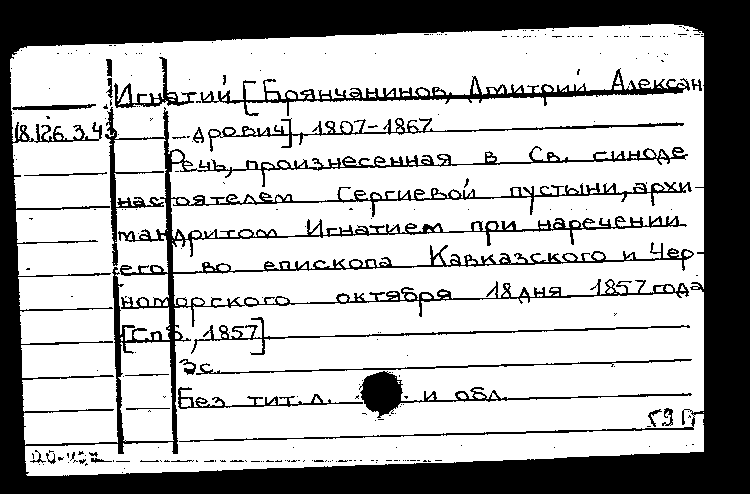 Игнатий [Брянчанинов, Дмитрий Алексан-
18.126.3.43 дрович], 1807-1867.
Речь, произнесенная в Св. синоде
настоятелем Сергиевой пустыни, архи-
мандритом Игнатием при наречении
его во епископа Кавказского и Чер-
номорского октября 18 дня 1857 года
[Спб., 1857]
3с.
Без тит. л. и обл.